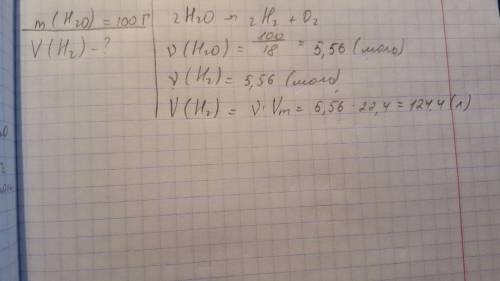 m(H₂O) = 100 г
V(H₂) - ?
2H₂O → 2H₂ + O₂
ν(H₂O) = 100/18 = 5,56 (моль)
ν(H₂) = 5,56 (моль)
V(H₂) = ν·Vm = 5,56 · 22,4 = 124,4 (л)